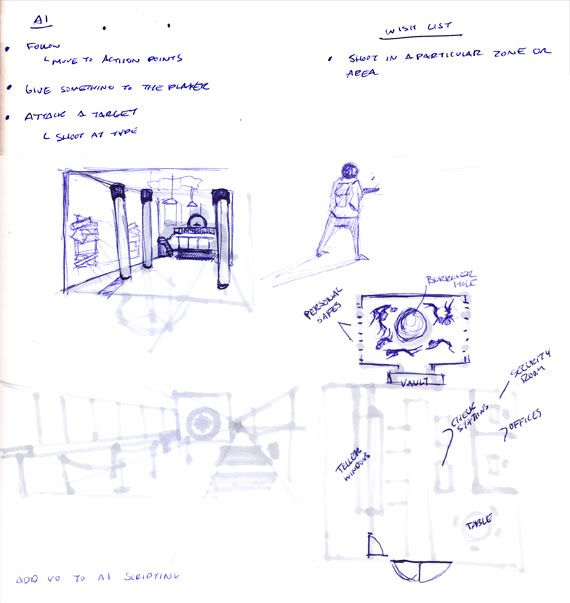 AI
• FOLLOW
└ MOVE TO ACTION POINTS
• GIVE SOMETHING TO THE PLAYER
• ATTACK A TARGET
└ SHOOT AT TYPE
WISH LIST
• SHOOT IN A PARTICULAR ZONE OR
AREA
PERSONAL
SAFES
HOLE
VAULT
SECURITY
ROOM
OFFICES
TELLER
WINDOWS
TABLE
ADD VO TO AI SCRIPTING